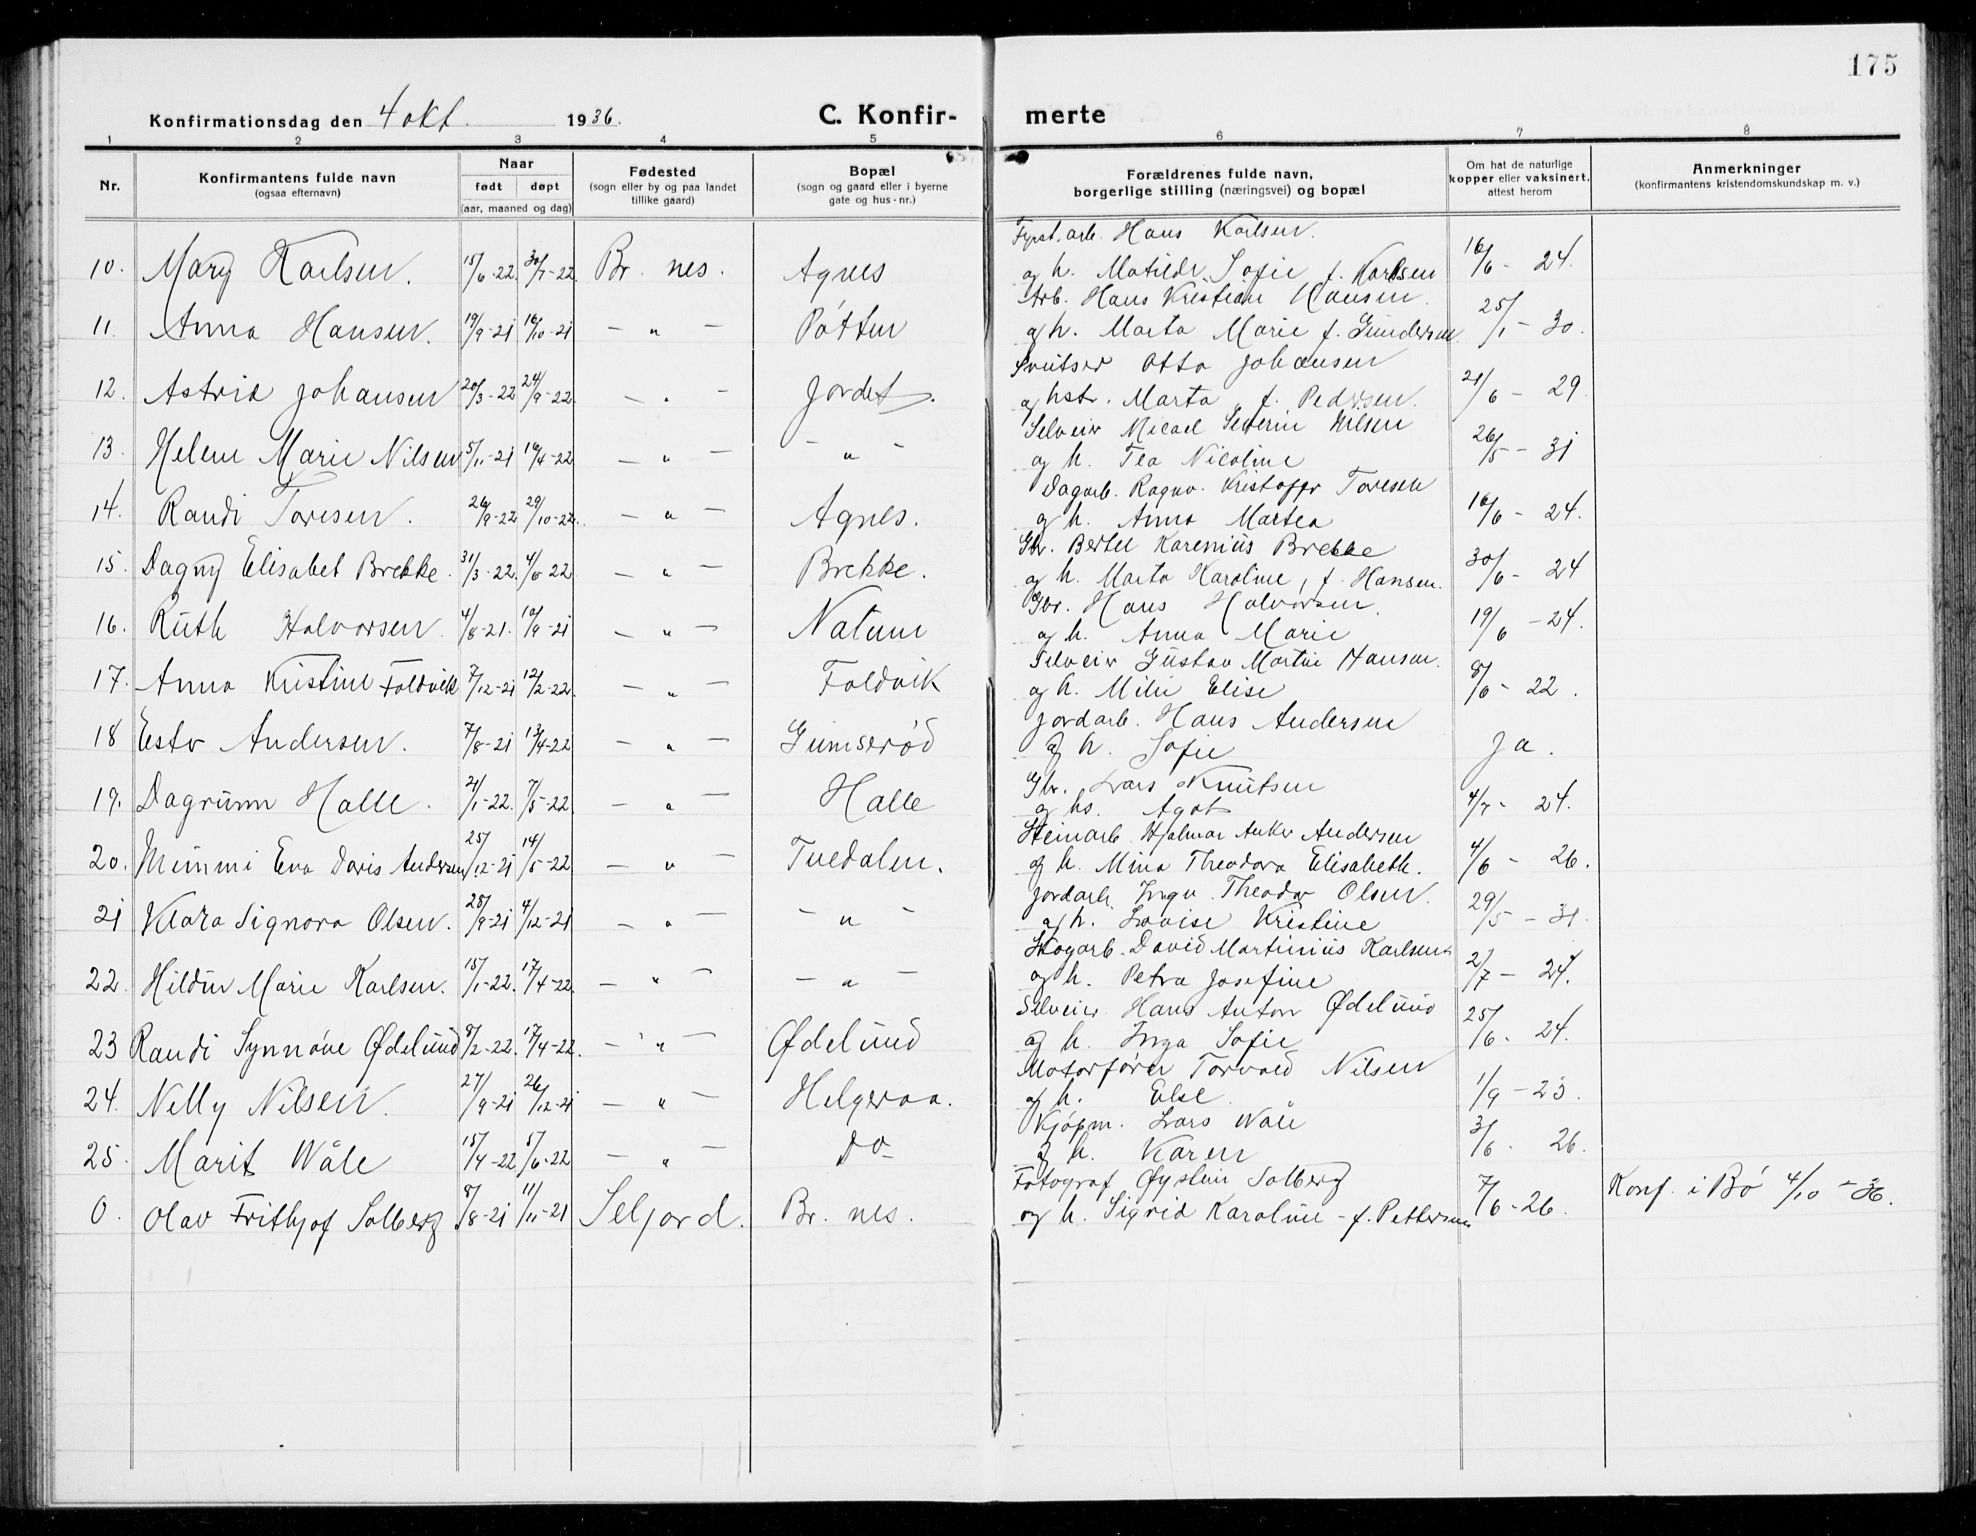 175
Konfirmationsdag den 4 okt. 1936. C. Konfirmerte
1 2 3 4 5 6 7 8
Nr.
Konfirmantens fulde navn
(ogsaa efternavn)
Naar
født døpt
(aar, maaned og dag)
Fødested
(sogn eller by og paa landet
tillike gaard)
Bopæl
(sogn og gaard eller i byerne
gate og hus-nr.)
Forældrenes fulde navn,
borgerlige stilling (næringsvei) og bopæl
Om hat de naturlige
kopper eller vaksinert,
attest herom
Anmerkninger
(konfirmantens kristendomskundskap m. v.)
Hans Karlsen.
10. Mary Karlsen. 15/6-22. 30/7-22. Br. nes. Agnes og h. Matilde Sofie f. Karlsen 16/6 - 24.
Arb. Hans Kristian Hansen.
11. Anna Hansen. 19/9-21 16/10-21 - " - Pøtten og h. Marta Marie f. Gundersen. 25/1 - 30.
Otto Johansen
12. Astrid Johansen 20/3-22 24/9-22. - " - Jordet. og hstr. Marta f. Pedersen. 21/6 - 29
Selveier Micael Severin Nilsen
13. Helene Marie Nilsen 5/11-21 16/4-22. - " - - " - og h. Tea Nicoline 26/5 - 31
Dagarb. Ragnv. Kristoffer Toresen
14. Randi Toresen. 26/9-22 29/10-22. - " - Agnes. og h. Anna Martea 16/6 - 24.
Gbr. Bertel Karenius Brekke
15. Dagny Elisabet Brekke. 31/3-22. 4/6 22 - " - Brekke. og h. Marta Karoline, f. Hansen. 30/6 - 24
Gbr. Hans Halvorsen.
16. Ruth Halvorsen. 4/8-21. 10/9-21 - " - Nalum og h. Anna Marie 19/6 - 24.
Selveier Gustav Martin Hansen.
17. Anna Kristine Foldvik 7/12-21 12/2-22. - " - Foldvik og h. Milie Elise 8/6 - 22.
Jordarb. Hans Andersen
18 Ester Andersen. 7/8-21 13/4-22 - " - Gumserød og h. Sofie Ja.
Gbr. Lars Knutsen
19. Dagrunn Halle. 21/1-22. 7/5-22 - " - Halle og hs. Agot 4/7 - 24.
Steinarb. Hjalmar Anker Andersen
20. Mimmi Eva Doris Andersen 25/12-21 14/5-22 - " - Tvedalen. og h. Mina Theodora Elisabeth. 4/6 - 26.
Jordarb. Ingv. Theodor Olsen.
21 Klara Signora Olsen. 25/9-21 4/12-21 - " - - " - og h. Lovise Kristine 29/5 - 31.
Skogarb. David Martinius Karlsen
22. Hildur Marie Karlsen. 15/1-22. 17/4-22. - " - - " - og h. Petra Josefine 2/7 - 24.
Selveier Hans Anton Ødelund
23 Randi Synnøve Ødelund 8/2-22. 17/4-22. - " - Ødelund og h. Inga Sofie 25/6. 24.
Motorfører Torvald Nilsen
24. Nelly Nilsen. 27/9-21 26/12-21 - " - Helgeroa. og h. Else 1/9 - 23.
Kjøpm. Lars Wåle
25. Marit Wåle 15/4-22 5/6-22 - " - Do og h. Karen 3/6 - 26.
Fotograf Øystein Solberg
0. Olav Frithjof Solberg. 8/8-21 11/11-21 Seljord. Br. nes. og h. Sigrid Karoline - f. Pettersen 7/6-26. Konf. i Bø 4/10 - 36.